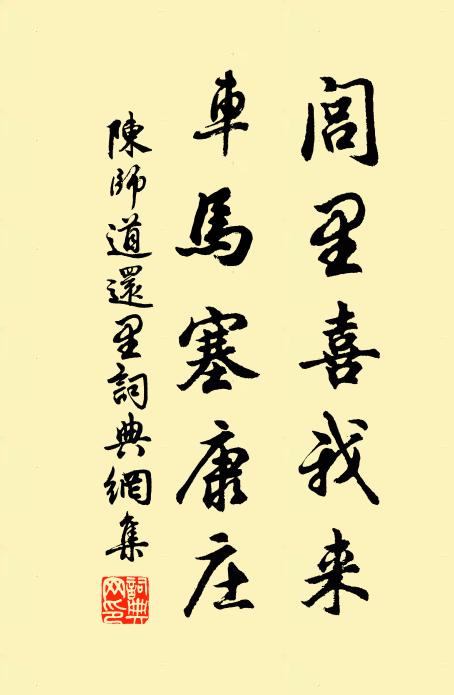 閭里喜我来
車馬塞康庄
陳師道還里詞典網集
詞典网印